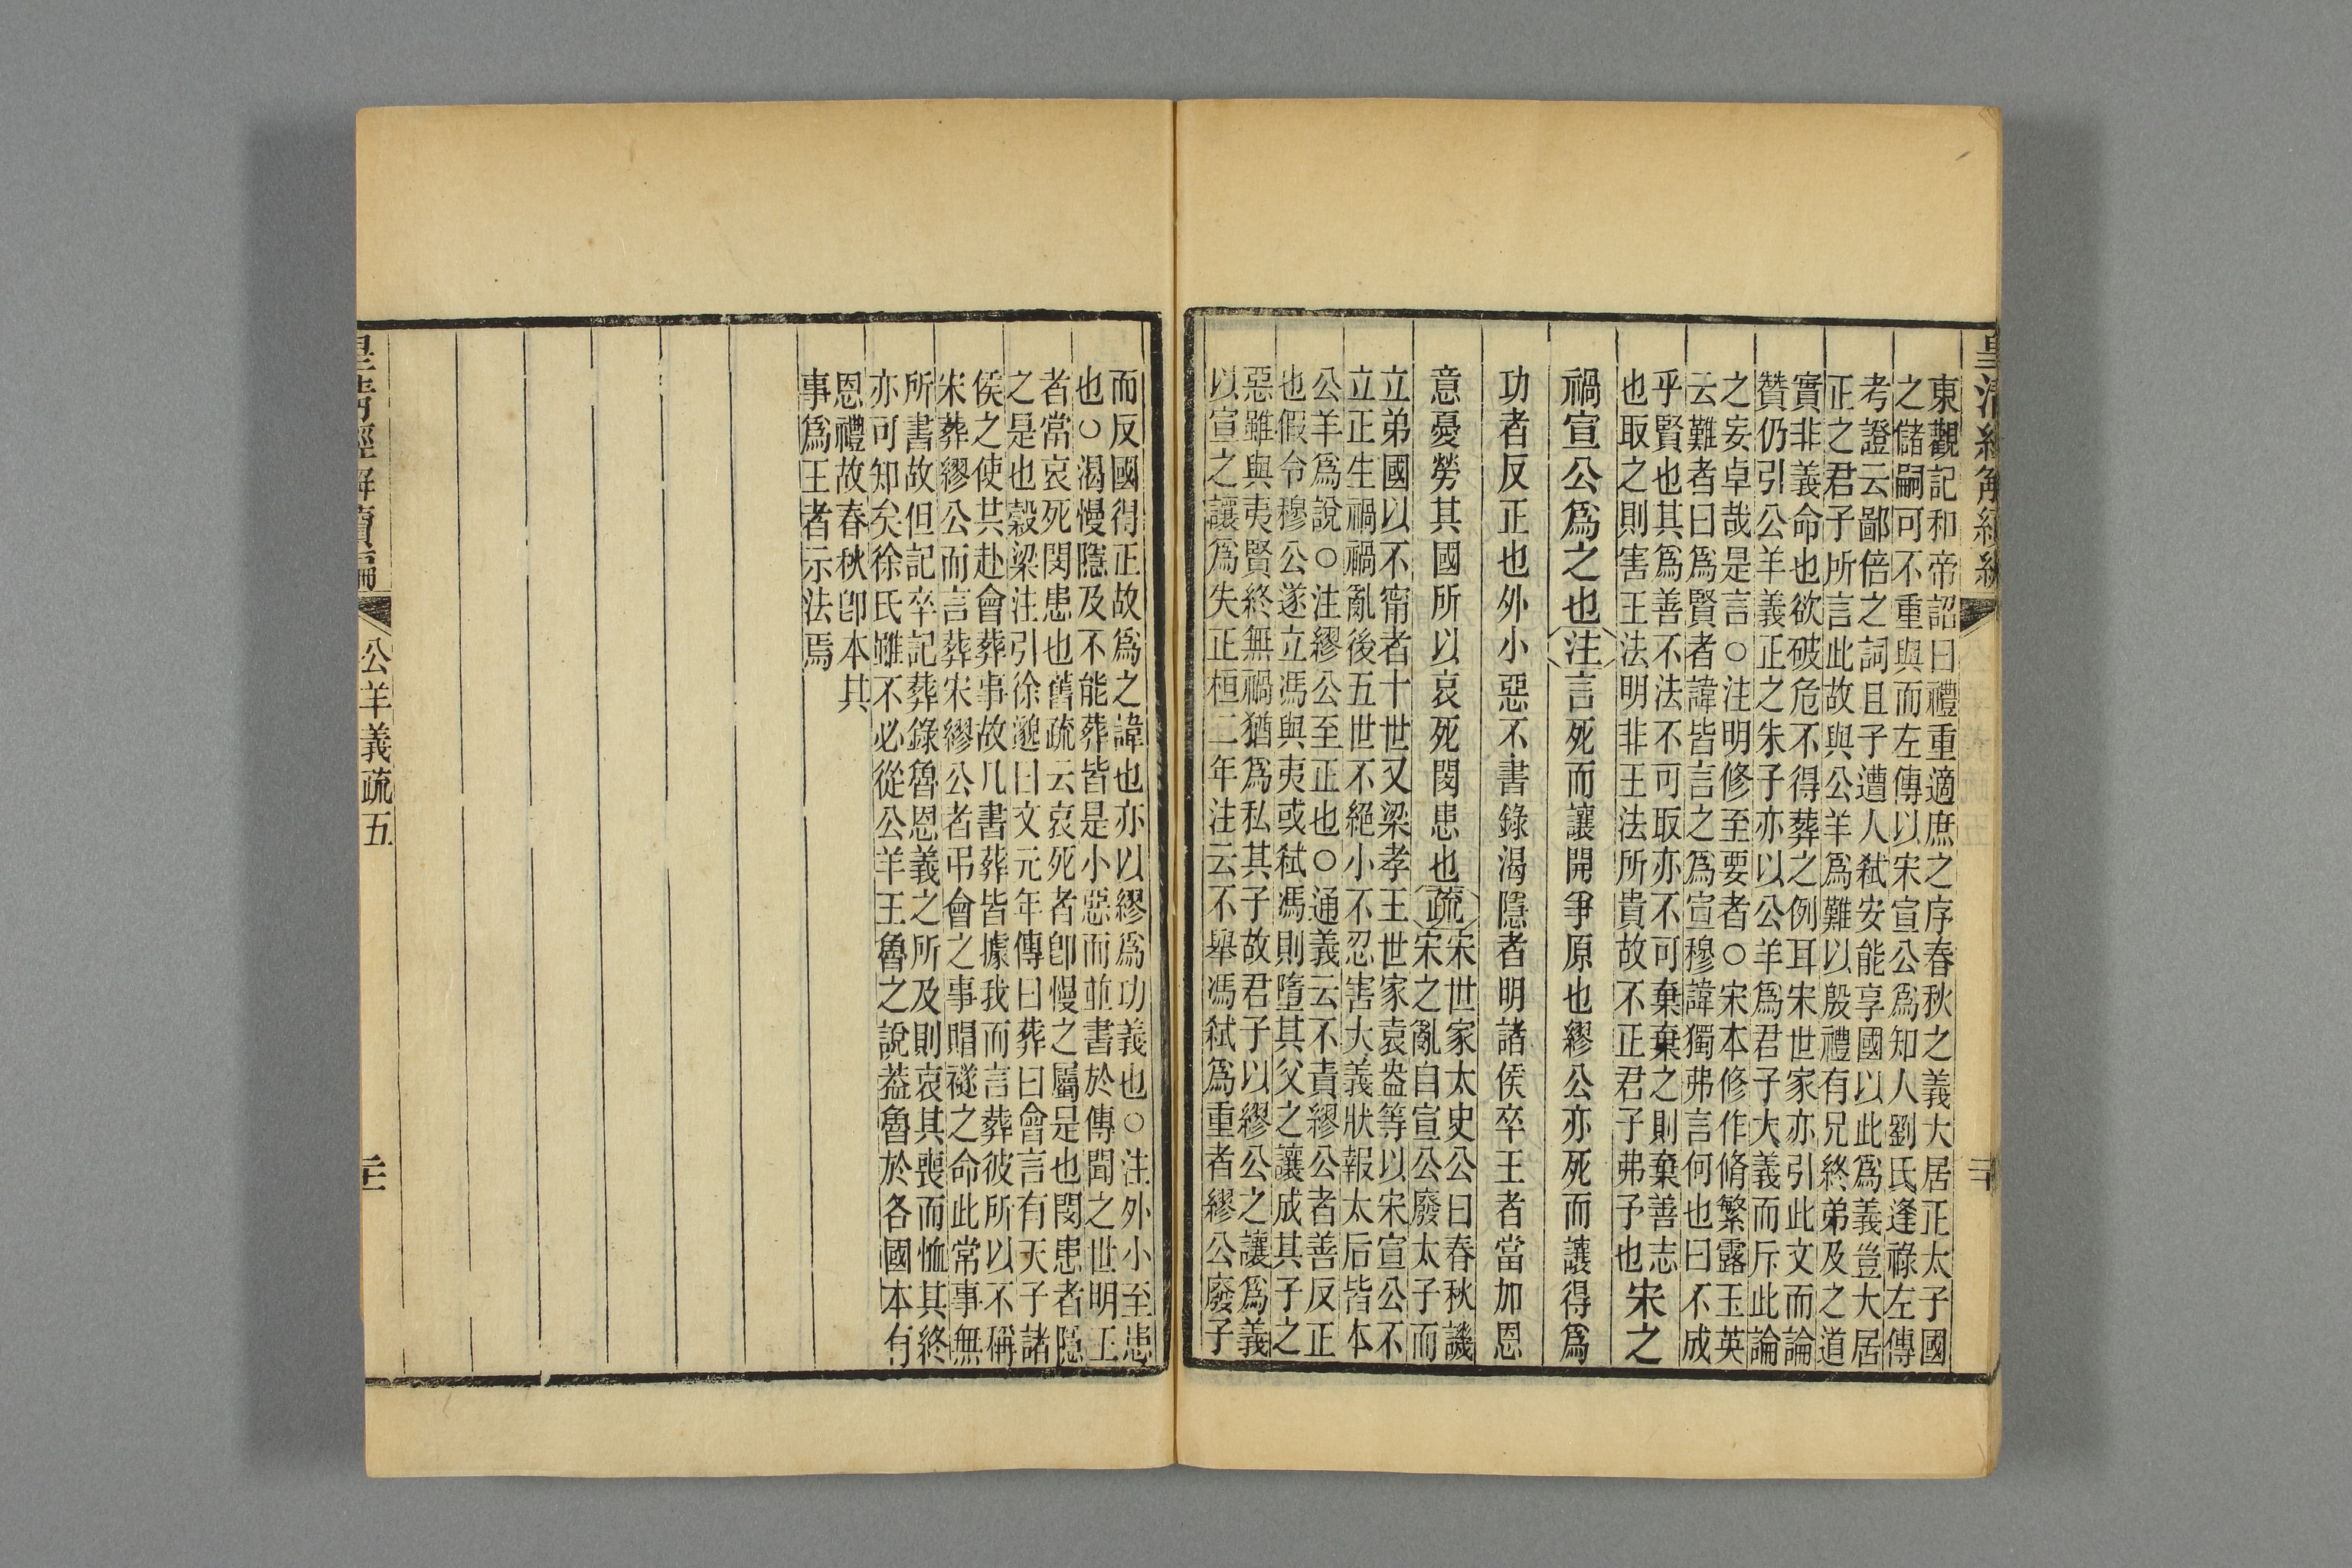 皇清經解續編
東觀記和帝詔曰禮重適庶之序春秋之義大居正太子國
之儲嗣可不重與而左傳以宋宣公爲知人劉氏逢祿左傳
考證云鄙倍之詞且子遭人弑安能享國以此爲義豈大居
正之君子所言此故與公羊爲難以殷禮有兄終弟及之道
實非義命也欲破危不得葬之例耳宋世家亦引此文而論
贊仍引公羊義正之朱子亦以公羊爲君子大義而斥此論
之妄卓哉是言○注明修至要者○宋本修作脩繁露玉英
云難者曰爲賢者諱皆言之爲宣穆諱獨弗言何也曰不成
乎賢也其爲善不法不可取亦不可棄棄之則棄善志
也取之則害王法明非王法所貴故不正君子弗予也宋之
禍宣公爲之也注言死而讓開爭原也繆公亦死而讓得爲
功者反正也外小惡不書錄渴隱者明諸侯卒王者當加恩
意憂勞其國所以哀死閔患也疏宋世家太史公曰春秋譏
宋之亂自宣公廢太子而
立弟國以不甯者十世又梁孝王世家袁盎等以宋宣公不
立正生禍禍亂後五世不絕小不忍害大義狀報太后皆本
公羊爲說○注繆公至正也○通義云不責繆公者善反正
也假令穆公遂立馮與夷或弑馮則墮其父之讓成其子之
惡雖與夷賢終無禍猶爲私其子故君子以繆公之讓爲義
以宣之讓爲失正桓二年注云不舉馮弑爲重者繆公廢子
而反國得正故爲之諱也亦以繆爲功義也○注外小至患
也○渴慢隱及不能葬皆是小惡而並書於傳聞之世明王
者當哀死閔患也舊疏云哀死者卽慢之屬是也閔患者隱
之是也穀梁注引徐邈曰文元年傳曰葬曰會言有天子諸
侯之使共赴會葬事故凡書葬皆據我而言葬彼所以不稱
宋葬繆公而言葬宋繆公者弔會之事賵襚之命此常事無
所書故但記卒記葬錄魯恩義之所及則哀其喪而恤其終
亦可知矣徐氏雖不必從公羊王魯之說葢魯於各國本有
恩禮故春秋卽本其
事爲王者示法焉
皇清經解續編 公羊義疏五